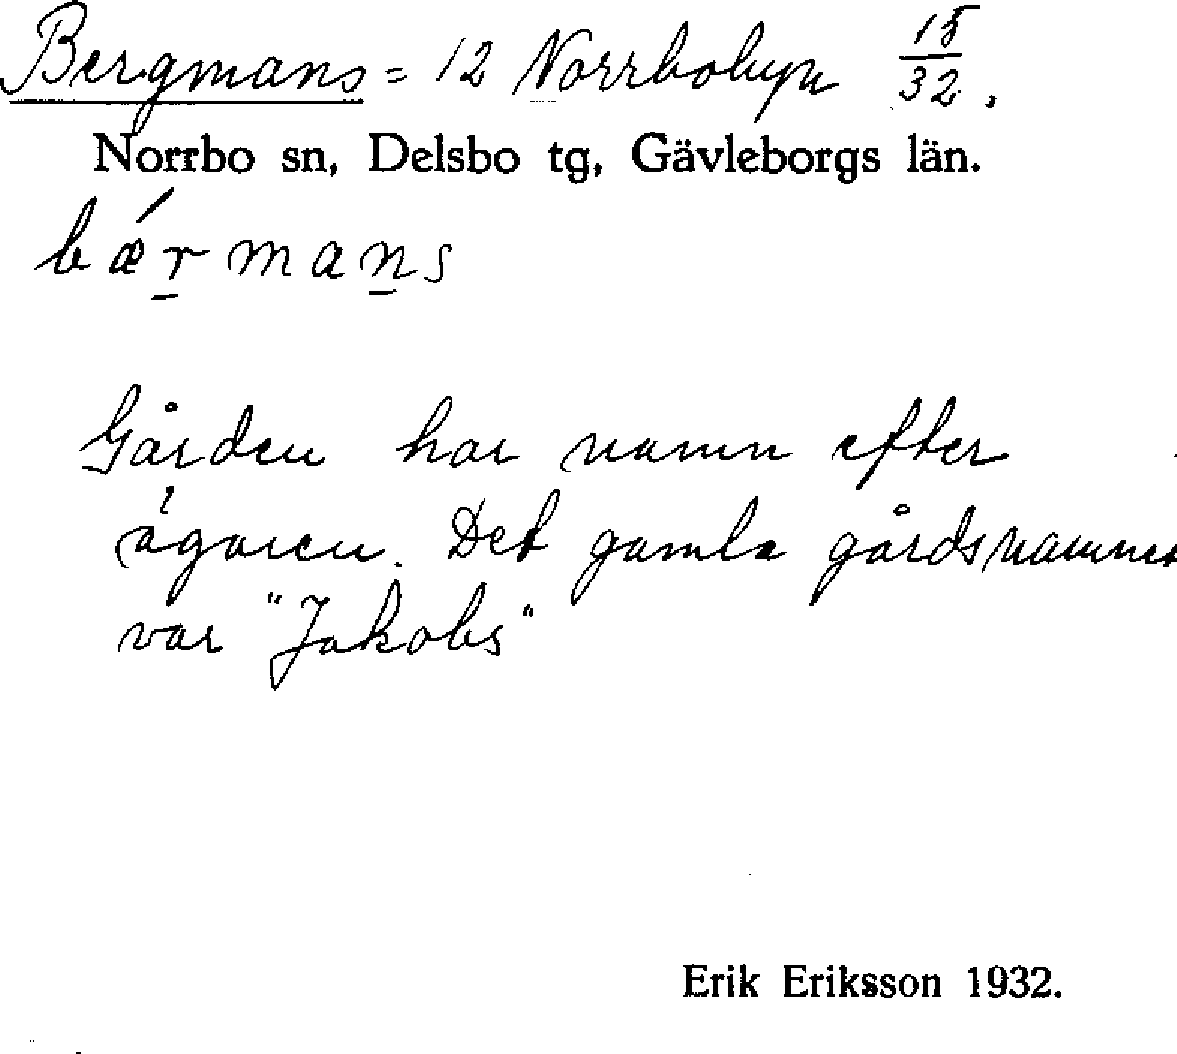 Bergmans = 12 Norrbobyn 15/32.
Norrbo sn, Delsbo tg, Gävleborgs län.
bǽr̲man̲s
Gården har namn efter
ägaren. Det gamla gårdsnamnet
var "Jakobs"
Erik Eriksson 1932.